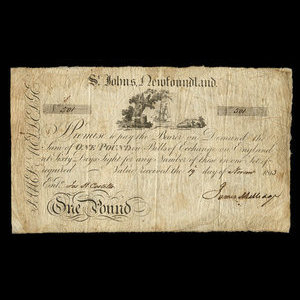 St. Johns, Newfoundland.
I Promise to pay the Bearer on Demand the
Sum of ONE POUND in Bills of Exchange on England
at Sixty Days Sight for any Number of these in one Set if
required Value received the 19 day of
Entd.
One Pound